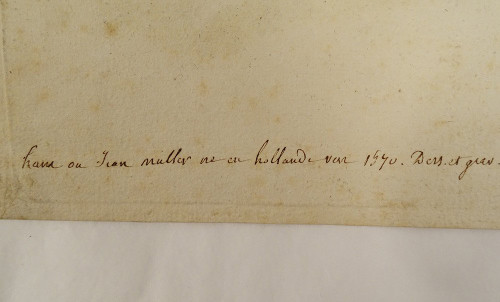 hans ou Jean muller né en hollande vers 1570. Dess. et grav.